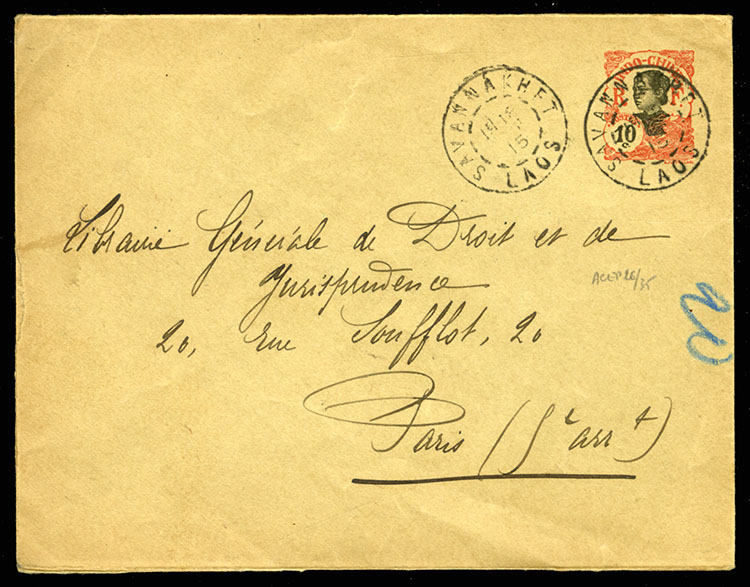 INDO-CHINE
R F
10
SAVANNAKHET
15
LAOS
SAVANNAKHET
15
LAOS
Librairie Générale de Droit et de
Jurisprudence
20, Rue Soufflot, 20
Paris (5e arrt)
ACEP 26/35